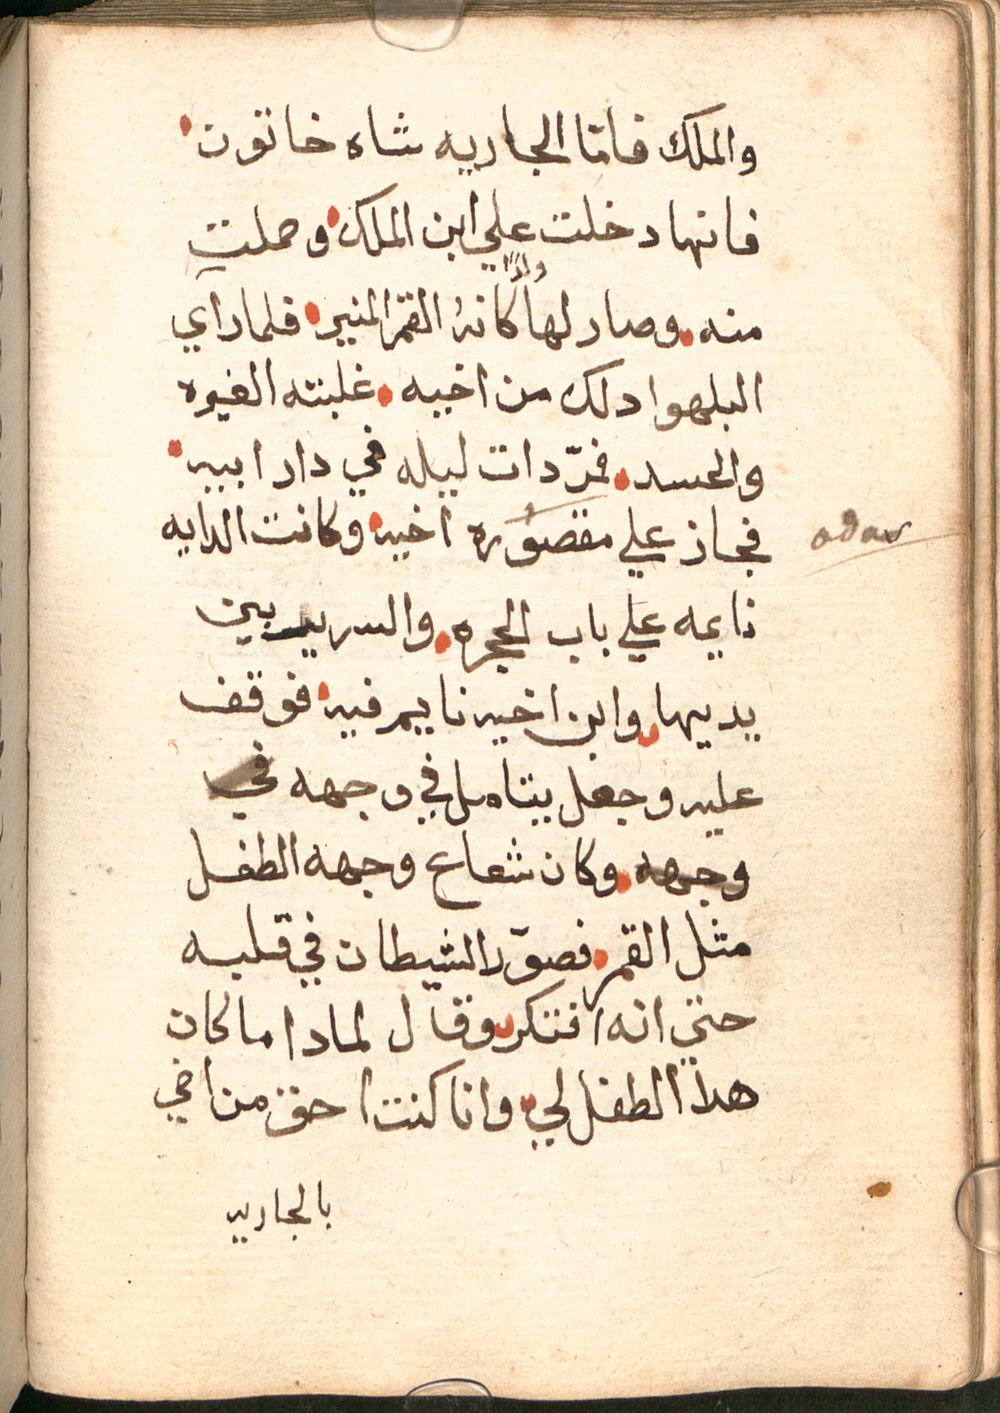 والملك فامّا الجاريه شاه خاتون
فانها دخلت علي ابن الملك وحملت
ولدًا
منه وصار لها كانهُ القمر المنير فلما رآي
البلهوا دلك من اخيه غلبته الغيره
والحسد فمرّ دات ليله في دار ابيه
فجاز علي مقصوره اخيه وكانت الدايه
odas
نايمه علي باب الحجره والسرير بين
يديها وابن اخيه نايم فيه فوقف
عليه وجعل يتامل في وجهه في
وجهه وكان شعاع وجهه الطفل
مثل القمر فصوّر الشيطان في قلبه
حتي انه افتكر وقال لمادا ما كان
هدا الطفل لي وانا كنت احق من اخي
بالجاريه